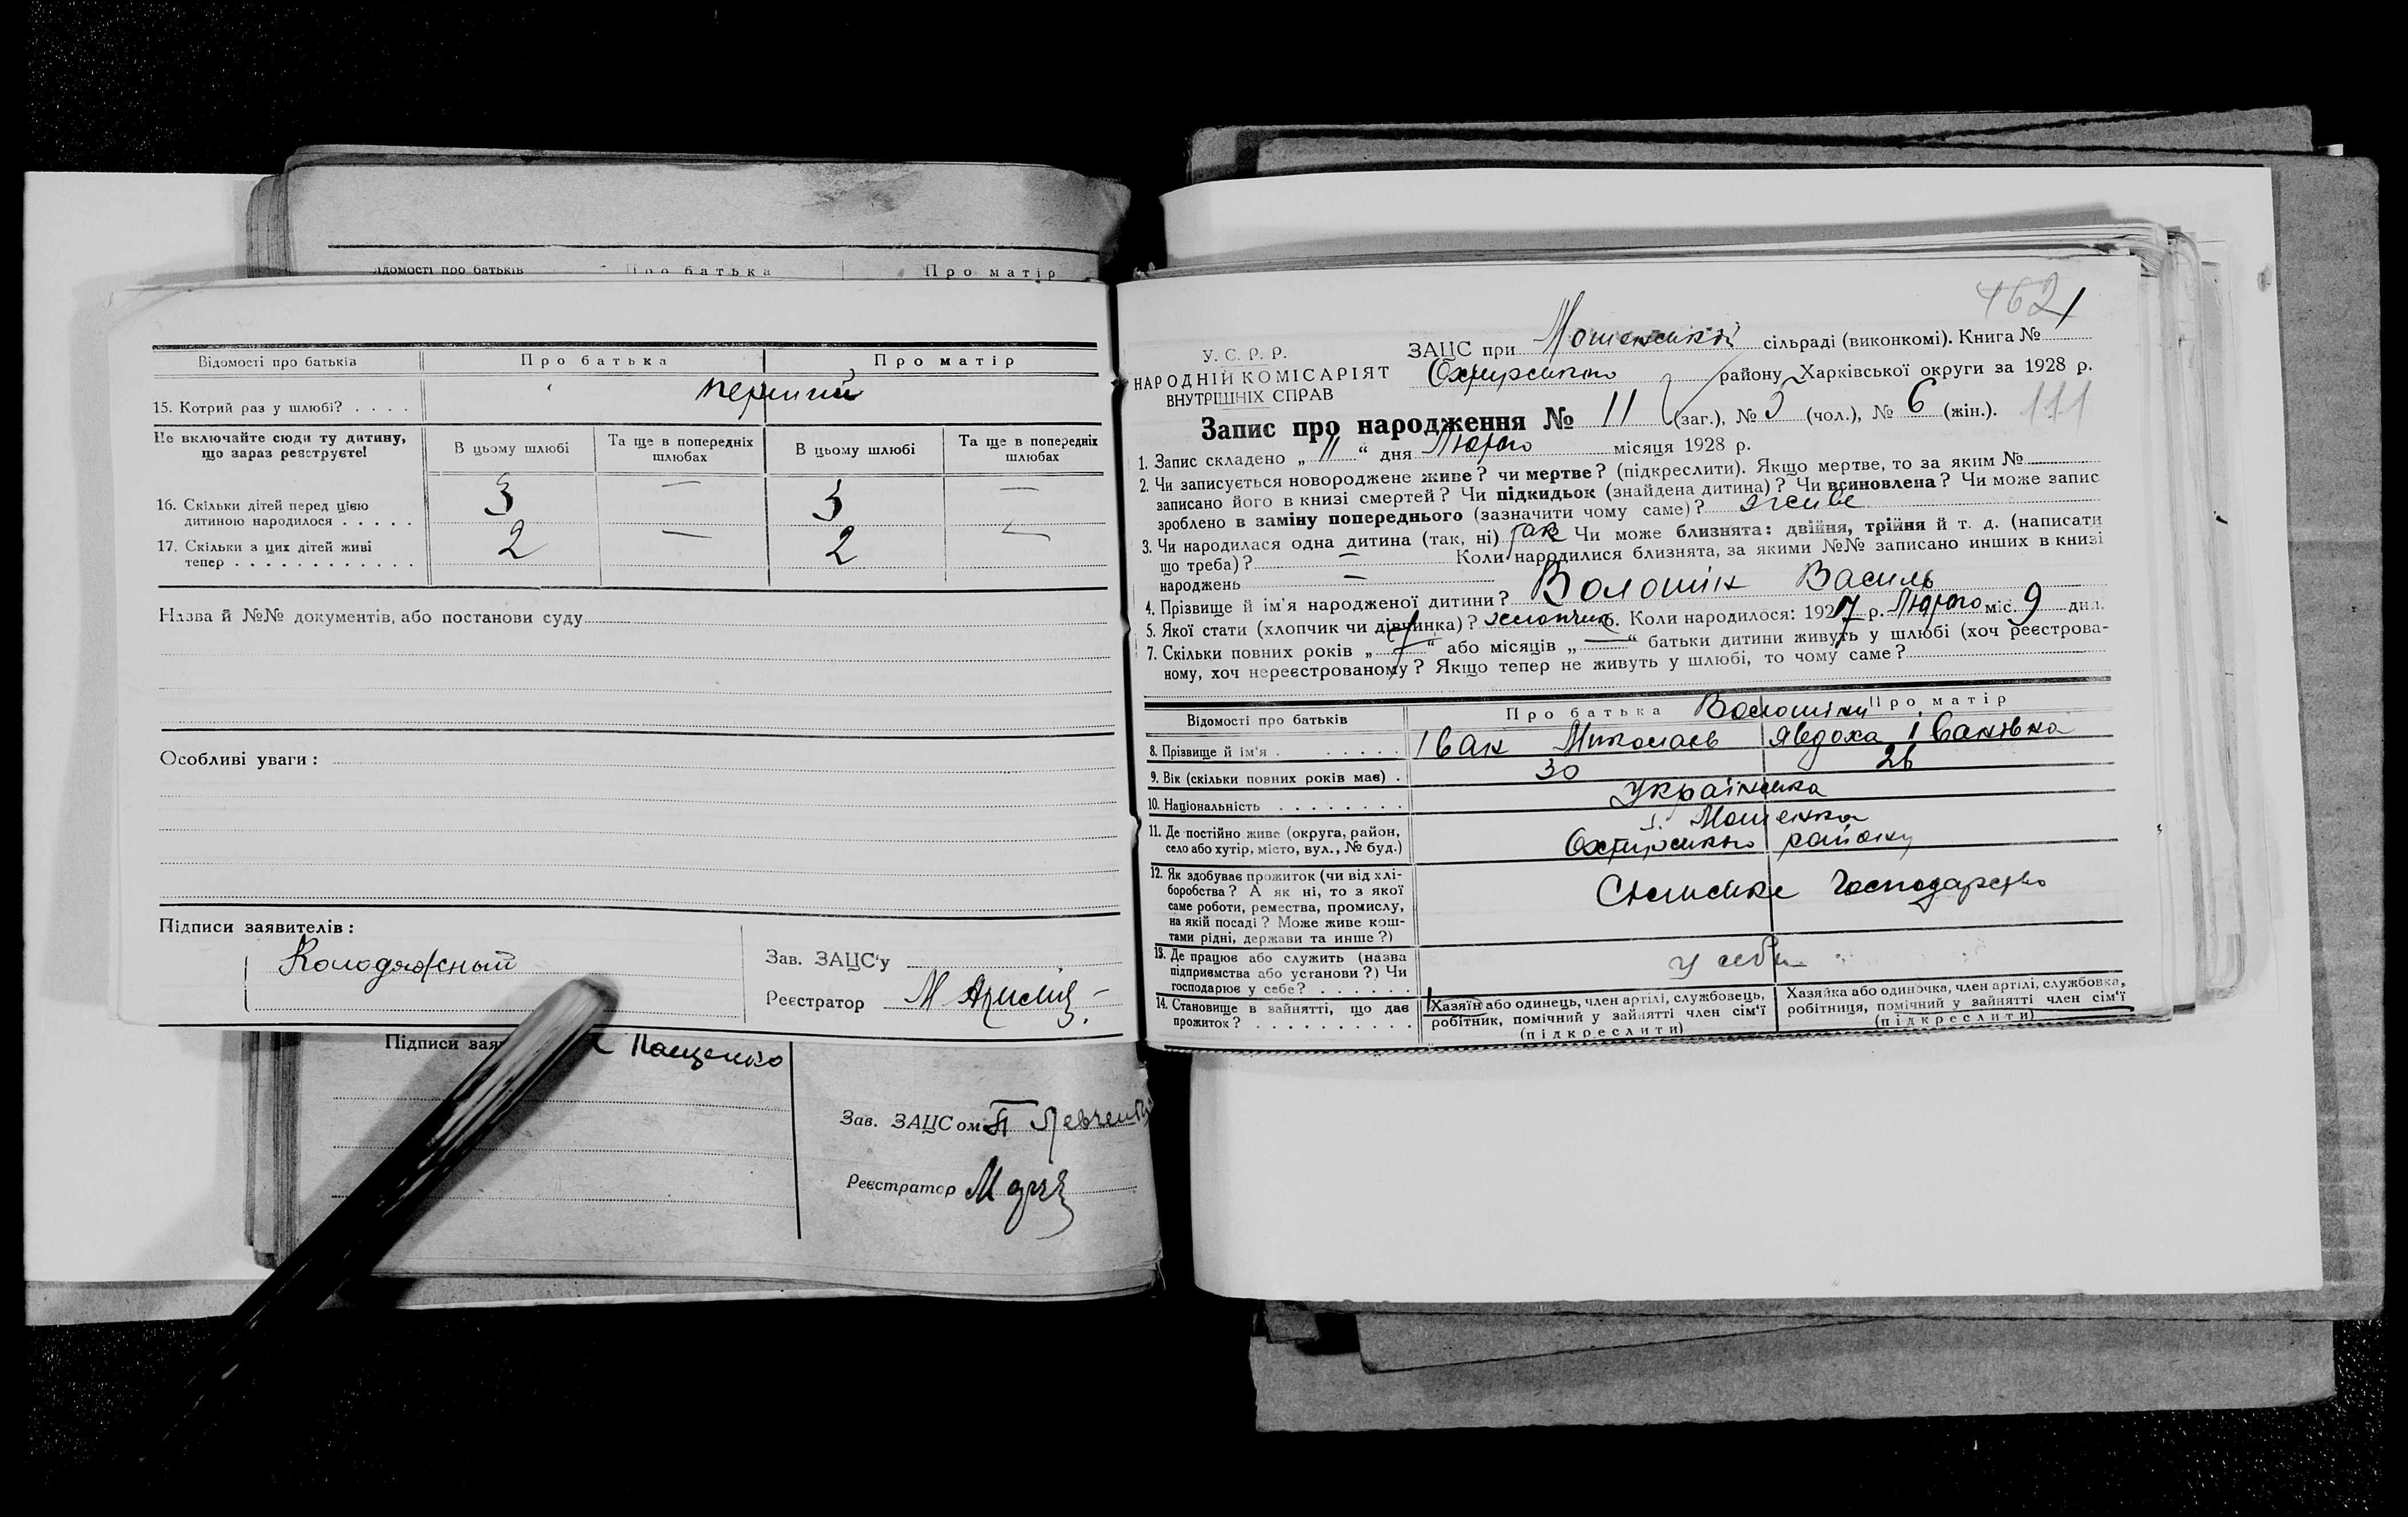 ідомості про батьків Про батька Про матір
Відомості про батьків Про батька Про матір
15. Котрий раз у шлюбі? . . . . перший
Не включайте сюди ту дитину, що зараз реєструєте!
В цьому шлюбі Та ще в попередніх шлюбах В цьому шлюбі Та ще в попередніх шлюбах
16. Скільки дітей перед цією дитиною народилося . . . . . 3 — 3 —
17. Скільки з цих дітей живі тепер . . . . . . . . . . . . 2 — 2 —
Назва й №№ документів, або постанови суду
Особливі уваги:
Підписи заявителів:
Колодяжный
Зав. ЗАЦС'у
Реєстратор М
Підписи зая Пащенко
Зав. ЗАЦСом П Левченко
Реєстратор М
4621
У. С. Р. Р.
НАРОДНІЙ КОМІСАРІЯТ
ВНУТРІШНІХ СПРАВ
ЗАЦС при Мошенській сільраді (виконкомі). Книга №
Охтирського району Харківської округи за 1928 р.
Запис про народження № 11 (заг.), № 5 (чол.), № 6 (жін.). 111
1. Запис складено „ 11 “ дня Лютого місяця 1928 р.
2. Чи записується новороджене живе? чи мертве? (підкреслити). Якщо мертве, то за яким №
записано його в книзі смертей? Чи підкидьок (знайдена дитина)? Чи всиновлена? Чи може запис
зроблено в заміну попереднього (зазначити чому саме)? живе
3. Чи народилася одна дитина (так, ні) так Чи може близнята: двійня, трійня й т. д. (написати
що треба)? — Коли народилися близнята, за якими №№ записано инших в книзі
народжень —
4. Прізвище й ім'я народженої дитини? Волошін Василь
5. Якої стати (хлопчик чи дівчинка)? хлопчик 6. Коли народилося: 1927 р. Лютого міс. 9 дня.
7. Скільки повних років „ 7 “ або місяців „ — “ батьки дитини живуть у шлюбі (хоч реєстрова-
ному, хоч нереєстрованому? Якщо тепер не живуть у шлюбі, то чому саме?
Відомості про батьків Про батька Волошіни Про матір
8. Прізвище й ім'я . . . . . . Іван Миколаєв Явдоха Іванівна
9. Вік (скільки повних років має) . 30 26
10. Національність . . . . . . . . Українська
11. Де постійно живе (округа, район, село або хутір, місто, вул., № буд.) с. Мошенка
Охтирського району
12. Як здобуває прожиток (чи від хлі-
боробства? А як ні, то з якої
саме роботи, ремества, промислу,
на якій посаді? Може живе кош-
тами рідні, держави та инше?)
Сільське Господарство
13. Де працює або служить (назва
підприємства або установи?) Чи
господарює у себе? . . . . . . у себе
14. Становище в зайнятті, що дає
прожиток? . . . . . . . . . .
Хазяїн або одинець, член артілі, службовець,
робітник, помічний у зайнятті член сім'ї
(підкреслити)
Хазяйка або одиночка, член артілі, службовка,
робітниця, помічний у зайнятті член сім'ї
(підкреслити)